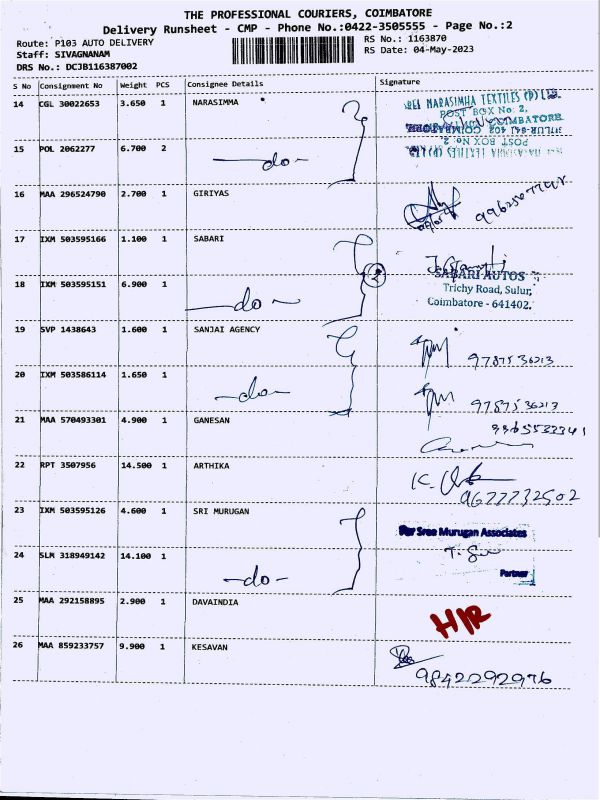 THE PROFESSIONAL COURIERS, COIMBATORE
Delivery Runsheet - CMP - Phone No.:0422-3505555 - Page No.:2
Route: P103 AUTO DELIVERY
RS No.: 1163870
Staff: SIVAGNANAM
RS Date: 04-May-2023
DRS No.: DCJB116387002
S No Consignment No Weight PCS Consignee Details Signature
14 CGL 30022653 3.650 1 NARASIMMA
SREE NARASIMHA TEXTILES (P) LTD.
POST BOX No: 2,
15 POL 2062277 6.700 2 -do-
16 MAA 296524790 2.700 1 GIRIYAS
17 IXM 503595166 1.100 1 SABARI
2
18 IXM 503595151 6.900 1 -do-
SABARI AUTOS
Trichy Road, Sulur,
Coimbatore - 641402.
19 SVP 1438643 1.600 1 SANJAI AGENCY
9787536213
20 IXM 503586114 1.650 1 -do-
9787536213
21 MAA 570493301 4.900 1 GANESAN
22 RPT 3507956 14.500 1 ARTHIKA
9677732502
23 IXM 503595126 4.600 1 SRI MURUGAN
For Sree Murugan Associates
24 SLM 318949142 14.100 1 -do-
Partner
25 MAA 292158895 2.900 1 DAVAINDIA
H/R
26 MAA 859233757 9.900 1 KESAVAN
9842292976